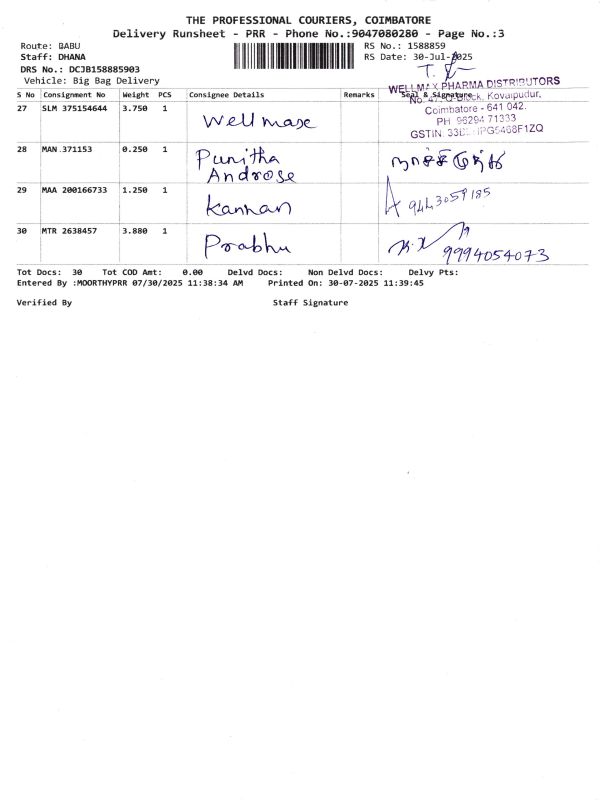 THE PROFESSIONAL COURIERS, COIMBATORE
Delivery Runsheet - PRR - Phone No.:9047080280 - Page No.:3
Route: BABU
RS No.: 1588859
Staff: DHANA
RS Date: 30-Jul-2025
DRS No.: DCJB158885903
Vehicle: Big Bag Delivery
WELLMAX PHARMA DISTRIBUTORS
S No Consignment No Weight PCS Consignee Details Remarks Seal & Signature
Block, Kovaipudur,
Coimbatore - 641 042.
PH 96294 71333
27 SLM 375154644 3.750 1 Wellmaxe
28 MAN 371153 0.250 1 Punitha
Androse
29 MAA 200166733 1.250 1 Kannan 9443059185
30 MTR 2638457 3.880 1 Prabhu 9994054073
Tot Docs: 30 Tot COD Amt: 0.00 Delvd Docs: Non Delvd Docs: Delvy Pts:
Entered By :MOORTHYPRR 07/30/2025 11:38:34 AM Printed On: 30-07-2025 11:39:45
Verified By Staff Signature